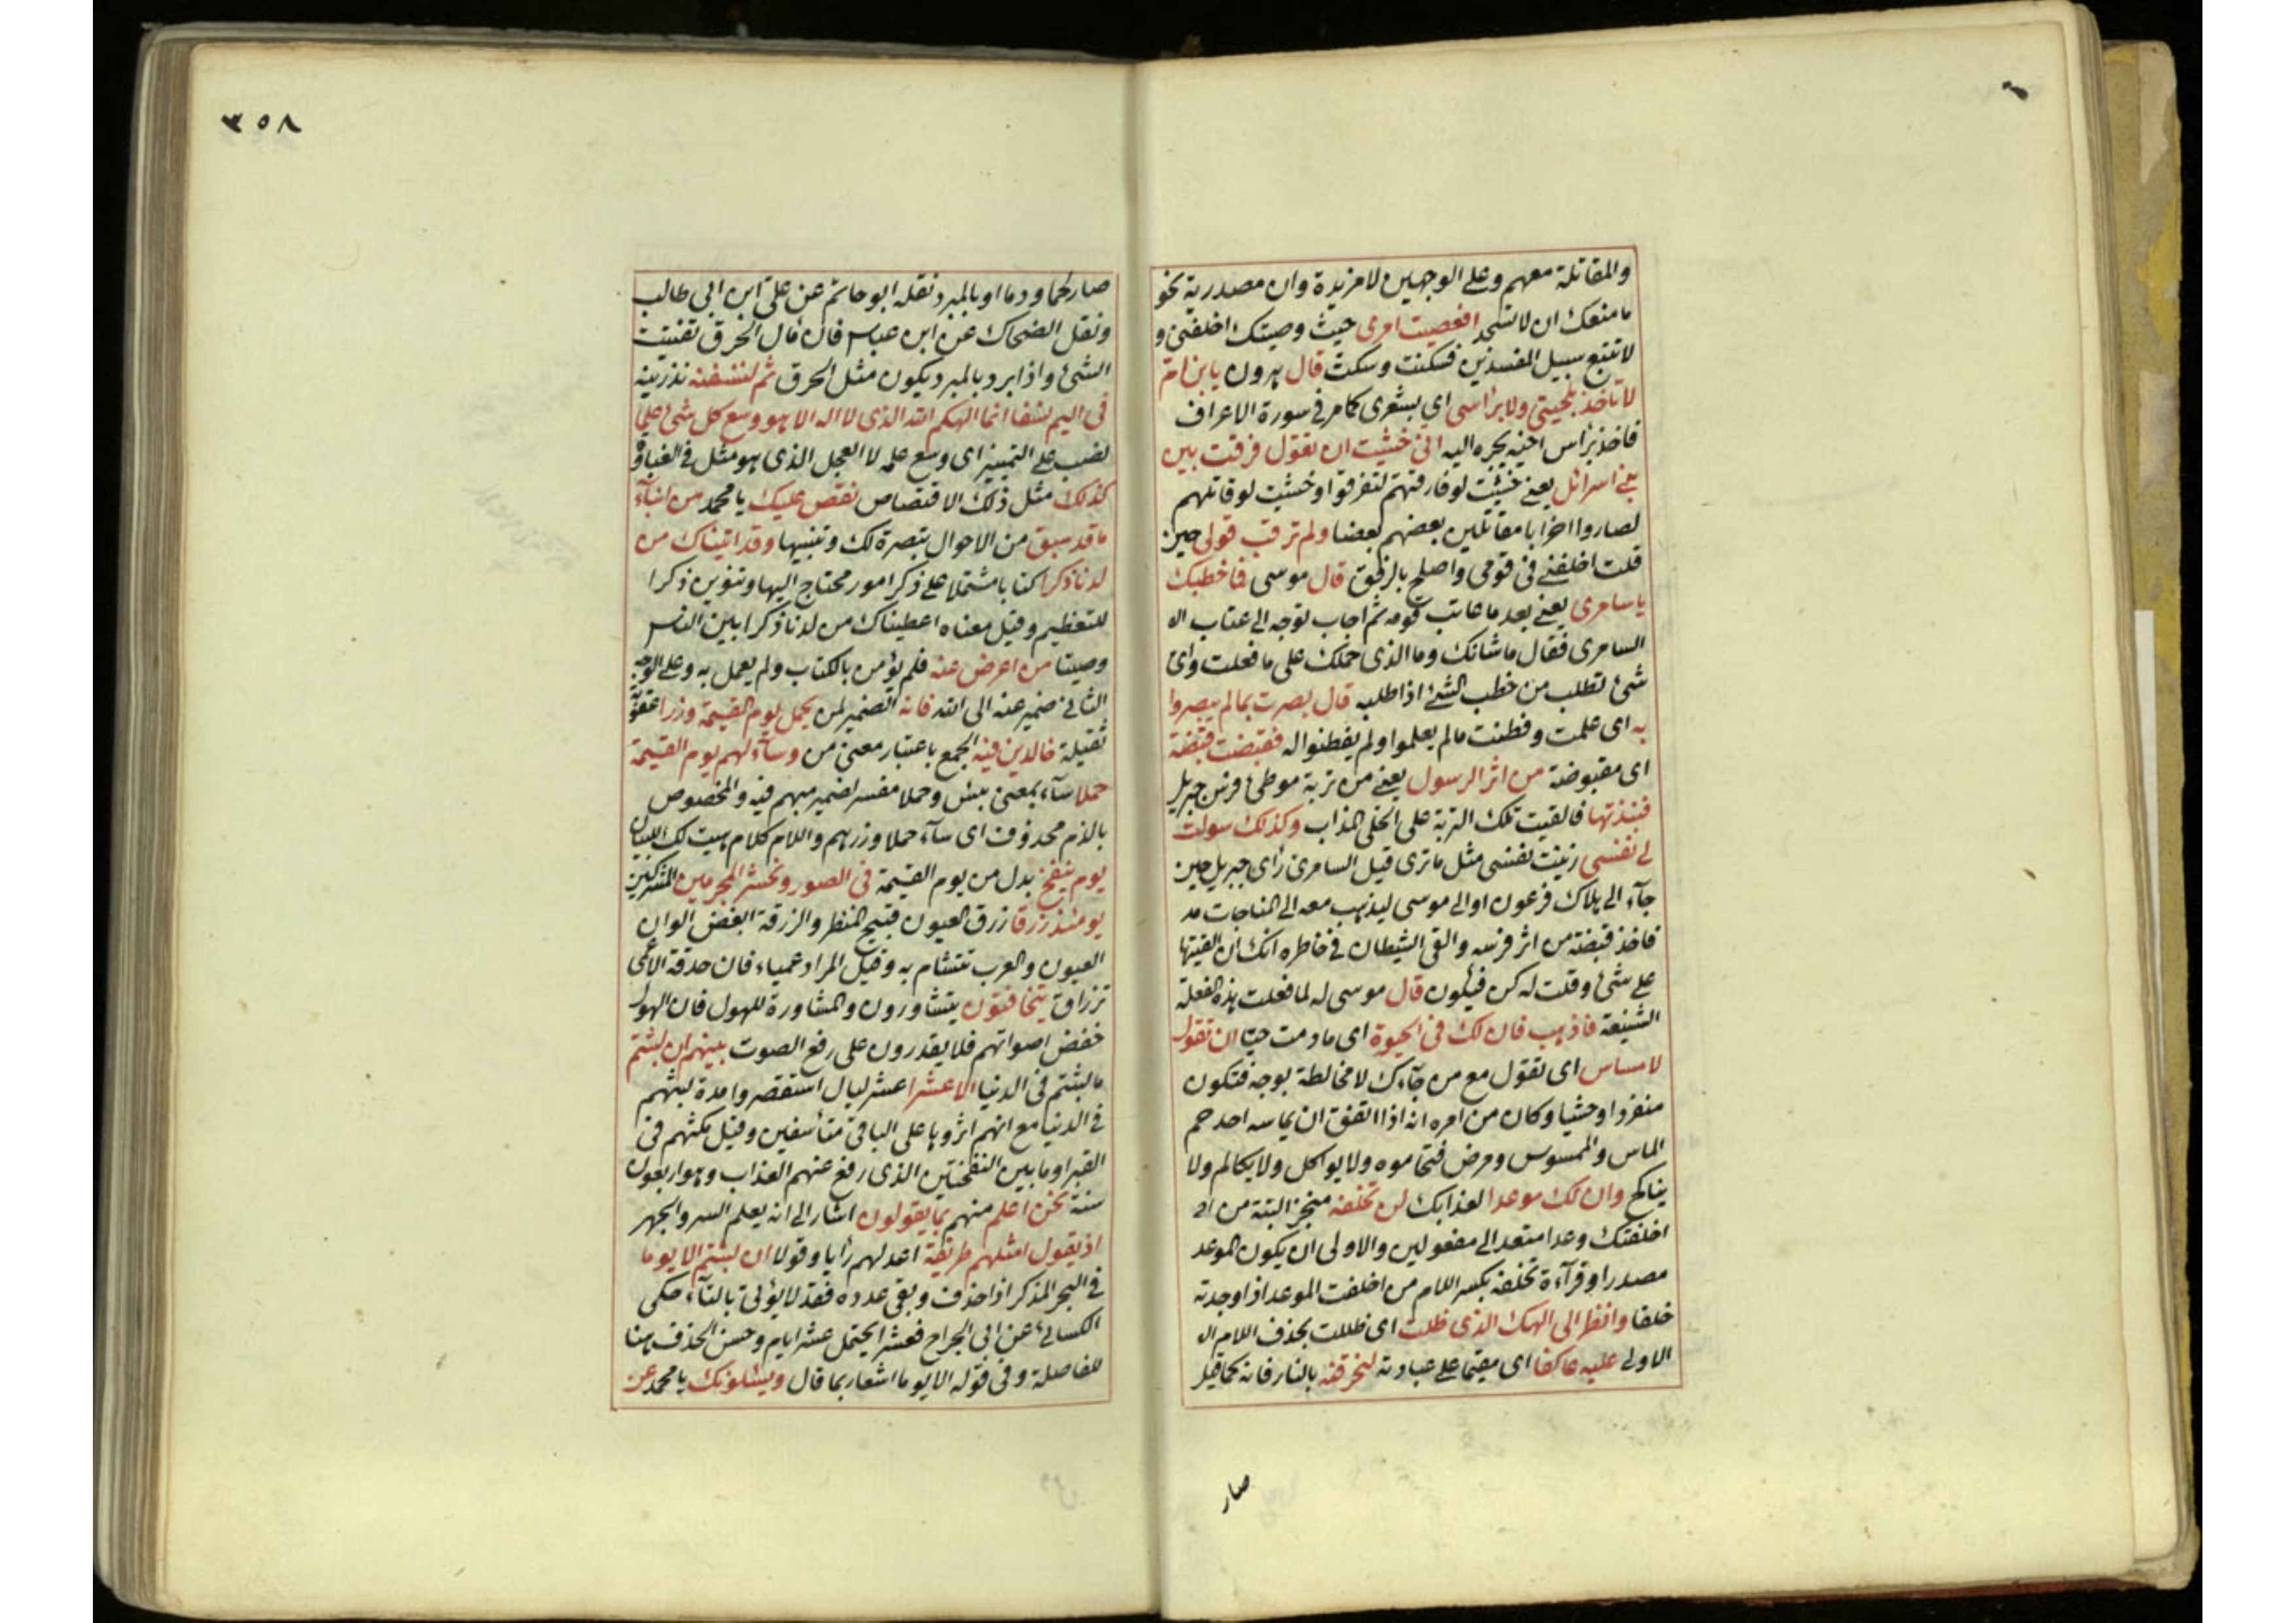 والمقاتلة معهم وعلى الوجهين لا مزيدة وان مصدرية نحو
ما منعك ان لا تسجد افعصيت امرى حيث وصيتك اخلفنى و
لا تتبع سبيل المفسدين فسكنت وسكت قال هرون يا بن ام
لا تاخذ بلحيتى ولا براسى اي بشعرى كما مر في سورة الاعراف
فاخذ برأس اخيه يجره اليه انى خشيت ان تقول فرقت بين
بنى اسرائل يعنى خشيت لو فارقتهم لتفرقوا وخشيت لو قاتلهم
لصاروا احزابا مقاتلين بعضهم بعضا ولم ترقب قولى حين
قلت اخلفنى فى قومى واصلح بالرفق قال موسى فما خطبك
يا سامرى يعنى بعد ما عاتب قومه ثم اجاب توجه الى عتاب اله
السامرى فقال ما شانك وما الذى حملك على ما فعلت واى
شئ تطلب من خطب الشئ اذا طلبه قال بصرت بما لم يبصروا
به اى علمت وفطنت ما لم يعلموا ولم يفطنوا له فقبضت قبضة
اى مقبوضة من اثر الرسول يعنى من تربة موطئ فرس جبريل
فنبذتها فالقيت تلك التربة على الحلى المذاب وكذلك سولت
لى نفسى زينت نفسى مثل ما ترى قيل السامرى رأى جبريل حين
جآء الى هلاك فرعون او الى موسى ليذهب معه الى المناجات مد
فاخذ قبضة من اثر فرسه والقى الشيطان في خاطره انك ان القيتها
على شئ وقلت له كن فيكون قال موسى له لما فعلت هذه الفعلة
الشنيعة فاذهب فان لك فى الحيوة اى ما دمت حيا ان تقول
لا مساس اى تقول مع من جآءك لا مخالطة بوجه فتكون
منفردا وحشيا وكان من امره انه اذا اتفق ان يماسه احد حم
الماس والممسوس ومرض فتحاموه ولا يواكل ولا يكالم ولا
يناكح وان لك موعدا لعذابك لن تخلفه منجز البتة من اى
اخلفتك وعدا متعد الى مفعولين والاولى ان يكون الموعد
مصدرا وقرآءة تخلفه بكسر اللام من اخلفت الموعد اذا وجدته
خلفا وانظر الى الهك الذى ظلت اى ظللت بحذف اللام اله
الاولى عليه عاكفا اى مقيما على عبادته لنحرقنه بالنار فانه كما قيل
صار
٣٥٨
صار لحما ودما او بالمبرد نقله ابو حاتم عن على ابن ابى طالب
ونقل الضحاك عن ابن عباس فان قال الحرق تفتيت
الشئ واذا برد بالمبرد يكون مثل الحرق ثم لننسفنه نذرينه
فى اليم نسفا انما الهكم الله الذى لا اله الا هو وسع كل شئ علما
نصب على التمييز اى وسع علمه لا العجل الذى هو مثل فى الغباوة
كذلك مثل ذلك الاقتصاص نقص عليك يا محمد من انبآء
ما قد سبق من الاحوال تبصرة لك وتنبيها وقد اتيناك من
لدنا ذكرا كتابا مشتملا على ذكر امور محتاج اليها وتنوين ذكرا
للتعظيم وقيل معناه اعطيناك من لدنا ذكرا بين الناس
وصيتا من اعرض عنه فلم يؤمن بالكتاب ولم يعمل به وعلى الوجه
الثانى ضمير عنه الى الله فانه الضمير لمن يحمل يوم القيمة وزرا عقوبة
ثقيلة خالدين فيه الجمع باعتبار معنى من وسآء لهم يوم القيمة
حملا سآء بمعنى بئس وحملا مفسر لضمير مبهم فيه والمخصوص
بالذم محذوف اى سآء حملا وزرهم واللام كلام هيت لك للبيان
يوم ينفخ بدل من يوم القيمة فى الصور ونحشر المجرمين المشركين
يومئذ زرقا زرق العيون قبيح المنظر والزرقة ابغض الوان
العيون والعرب تتشام به وقيل المراد عمياء فان حدقة الاعمى
تزراق يتخافتون يتشاورون والمشاورة للهول فان الهول
خفض اصواتهم فلا يقدرون على رفع الصوت بينهم ان لبثتم
ما لبثتم فى الدنيا الا عشرا عشر ليال استقصروا مدة لبثهم
فى الدنيا مع انهم اثروها على الباقى متأسفين وقيل مكثهم فى
القبر او ما بين النفختين الذى رفع عنهم العذاب وهو اربعون
سنة نحن اعلم منهم بما يقولون اشار الى انه يعلم السر والجهر
اذ يقول امثلهم طريقة اعدلهم رأيا وقولا ان لبثتم الا يوما
فى البحر المذكر اذا حذف وبقى عدده فقد لا يؤتى بالتآء حكى
الكسائى عن ابى الجراح فعشرا يحتمل عشر ايام وحسن الحذف هنا
للفاصلة وفى قوله الا يوما اشعار بما قال ويسئلونك يا محمد عن